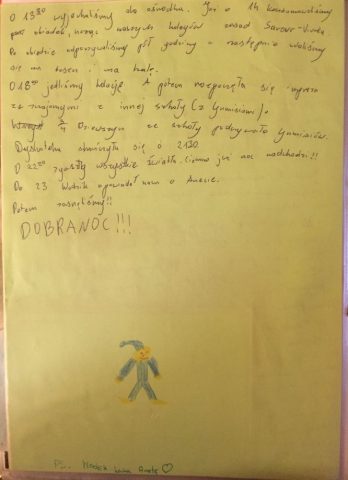 O 13³⁰ wyjechaliśmy do ośrodka. Już o 14 konsumowaliśmy
obiadek, ucząc naszych kolegów zasad Savoir-Vivre.
Po obiedzie odpoczywaliśmy pół godziny a następnie
się na basen i na
O 18⁰⁰ jedliśmy kolację. A potem rozpoczęła się impreza
ze znajomymi z innej szkoły (z Gumisiami).
Dziewczyn ze szkoły podrywało Gumisiów.
Dyskoteka skończyła się o 21³⁰.
O 22⁰⁰ zgasły wszystkie światła. Ciemna już noc nadchodzi!!
Do 23 opowiadał nam o Anecie.
Potem zasnęliśmy!!
DOBRANOC!!!
Ps. kocha Anetę ♡